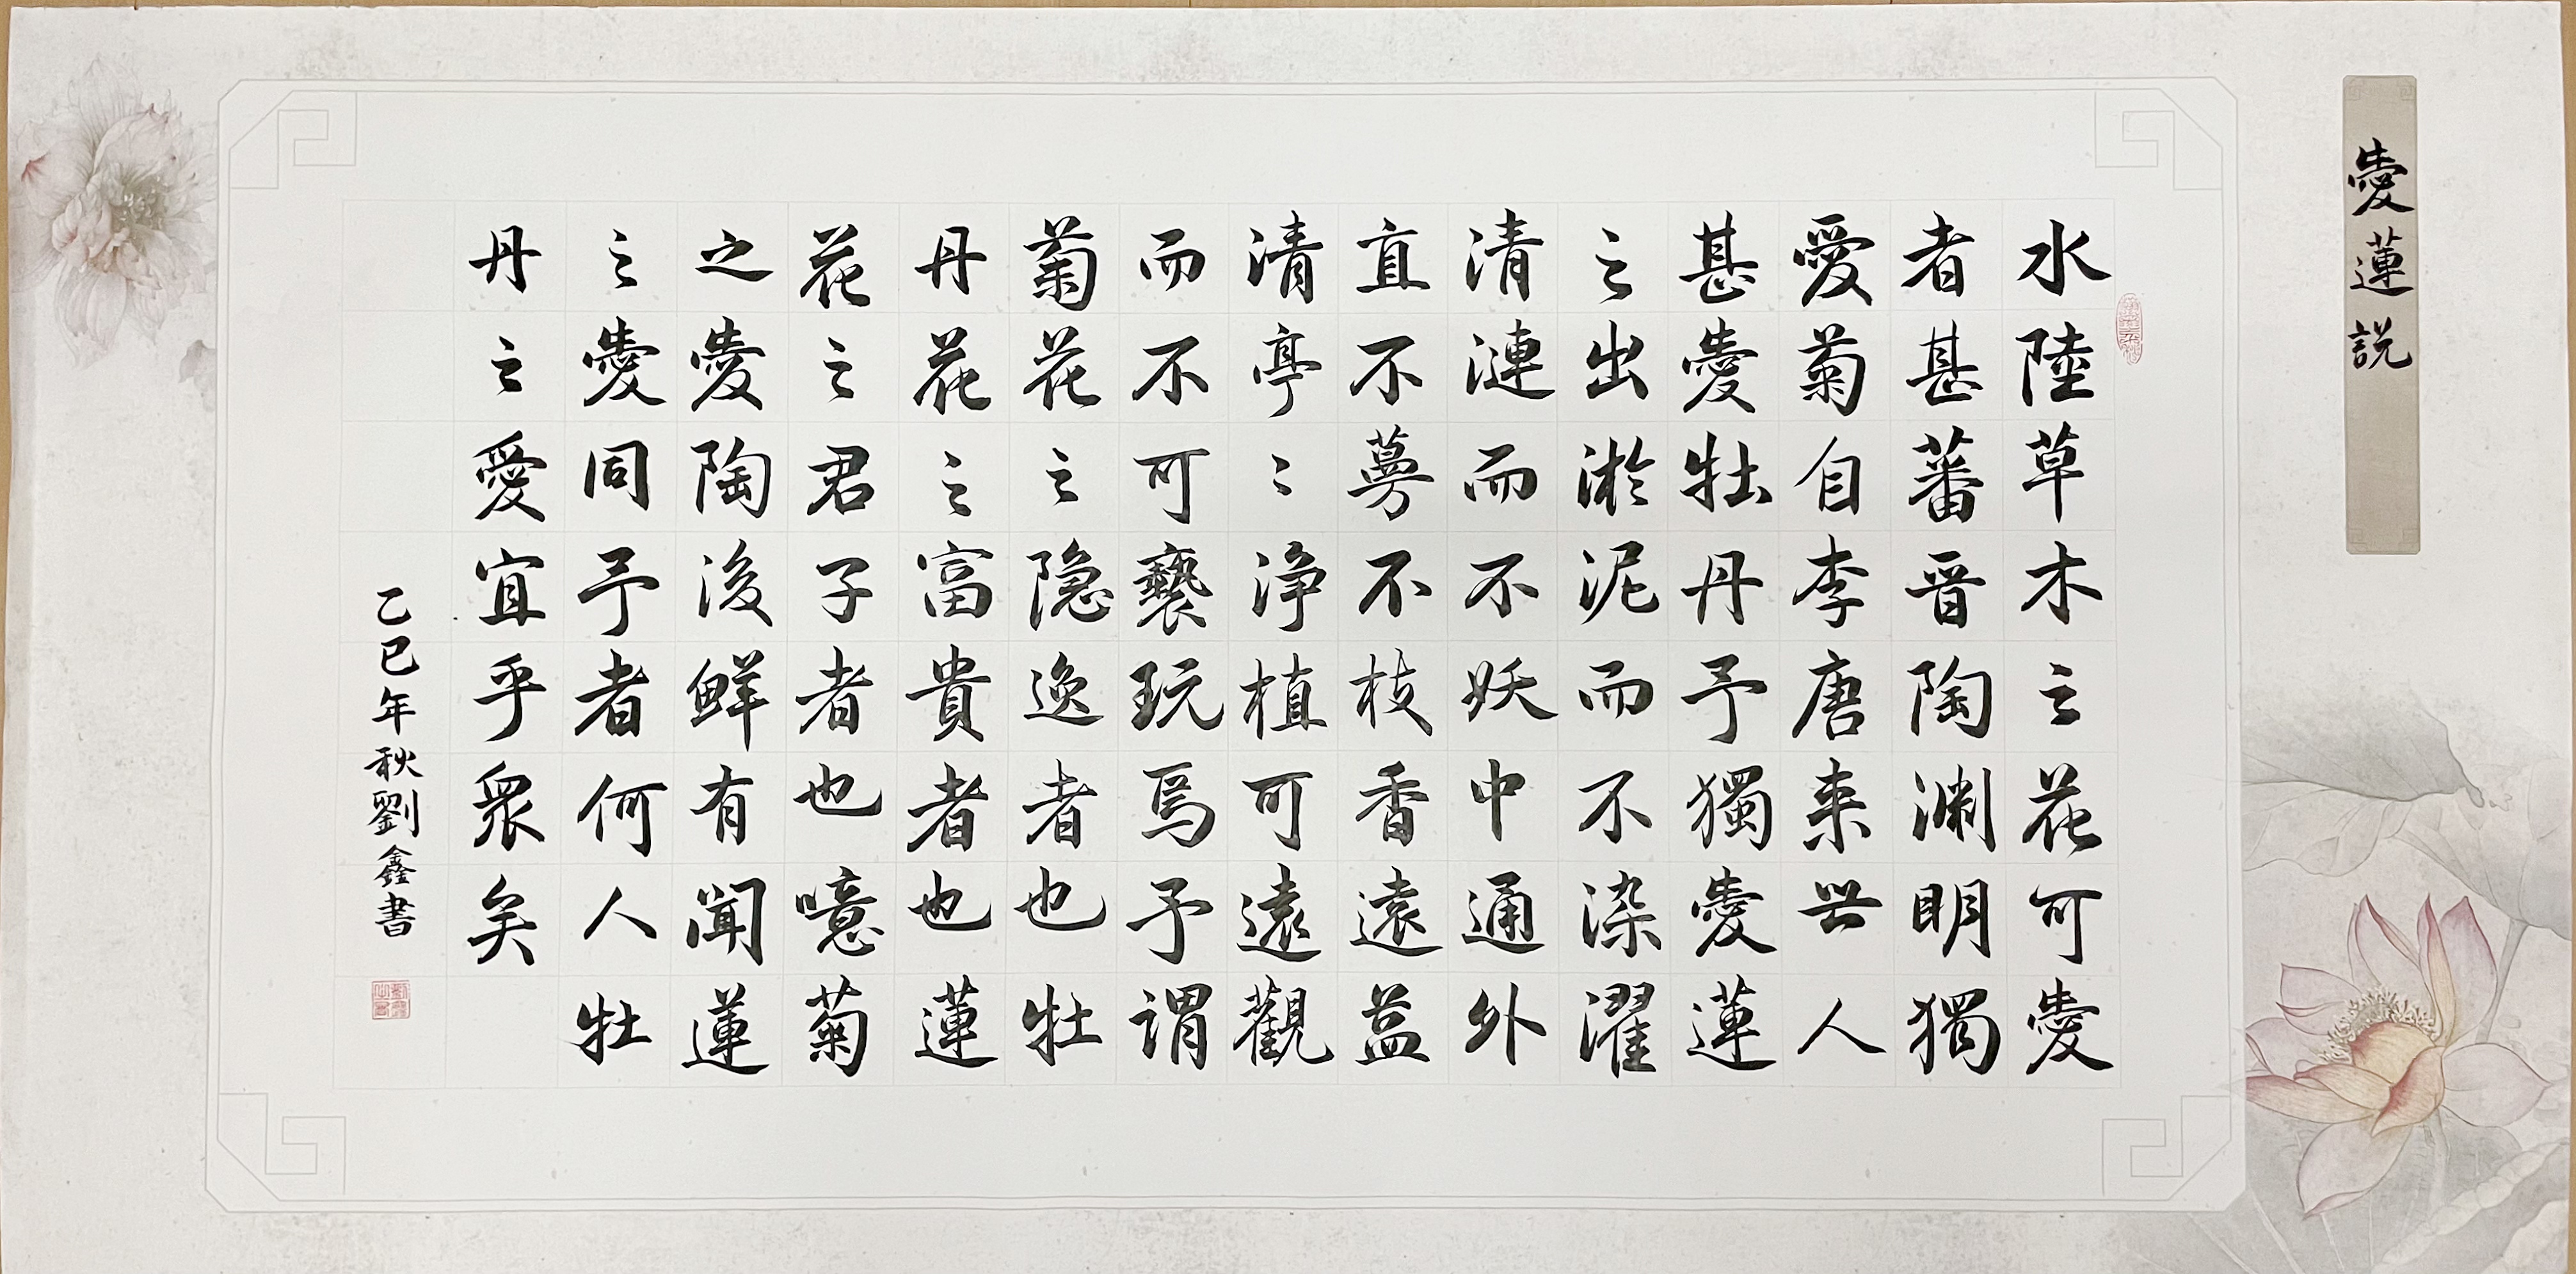 愛蓮説
水陸草木之花可愛
者甚蕃晉陶淵明獨
愛菊自李唐来世人
甚愛牡丹予獨愛蓮
之出淤泥而不染濯
清漣而不妖中通外
直不蔓不枝香遠益
清亭〻浄植可遠觀
而不可褻玩焉予謂
菊花之隐逸者也牡
丹花之富貴者也蓮
花之君子者也噫菊
之愛陶後鮮有聞蓮
之愛同予者何人牡
丹之愛宜乎衆矣
乙巳年秋劉鑫書